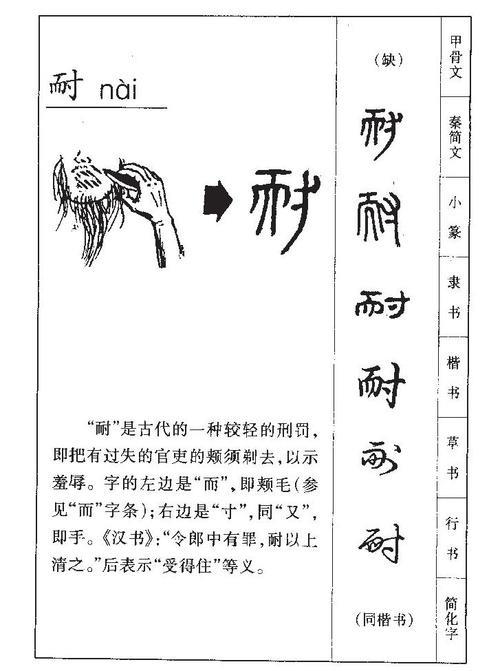 耐 nài
耐
“耐”是古代的一种较轻的刑罚,
即把有过失的官吏的颊须剃去,以示
羞辱。字的左边是“而”,即颊毛(参
见“而”字条);右边是“寸”,同“又”,
即手。《汉书》:“令郎中有罪,耐以上
清之。”后表示“受得住”等义。
(缺)
耐
耐
耐
耐
耐
耐
(同楷书)
甲骨文
秦简文
小篆
隶书
楷书
草书
行书
简化字